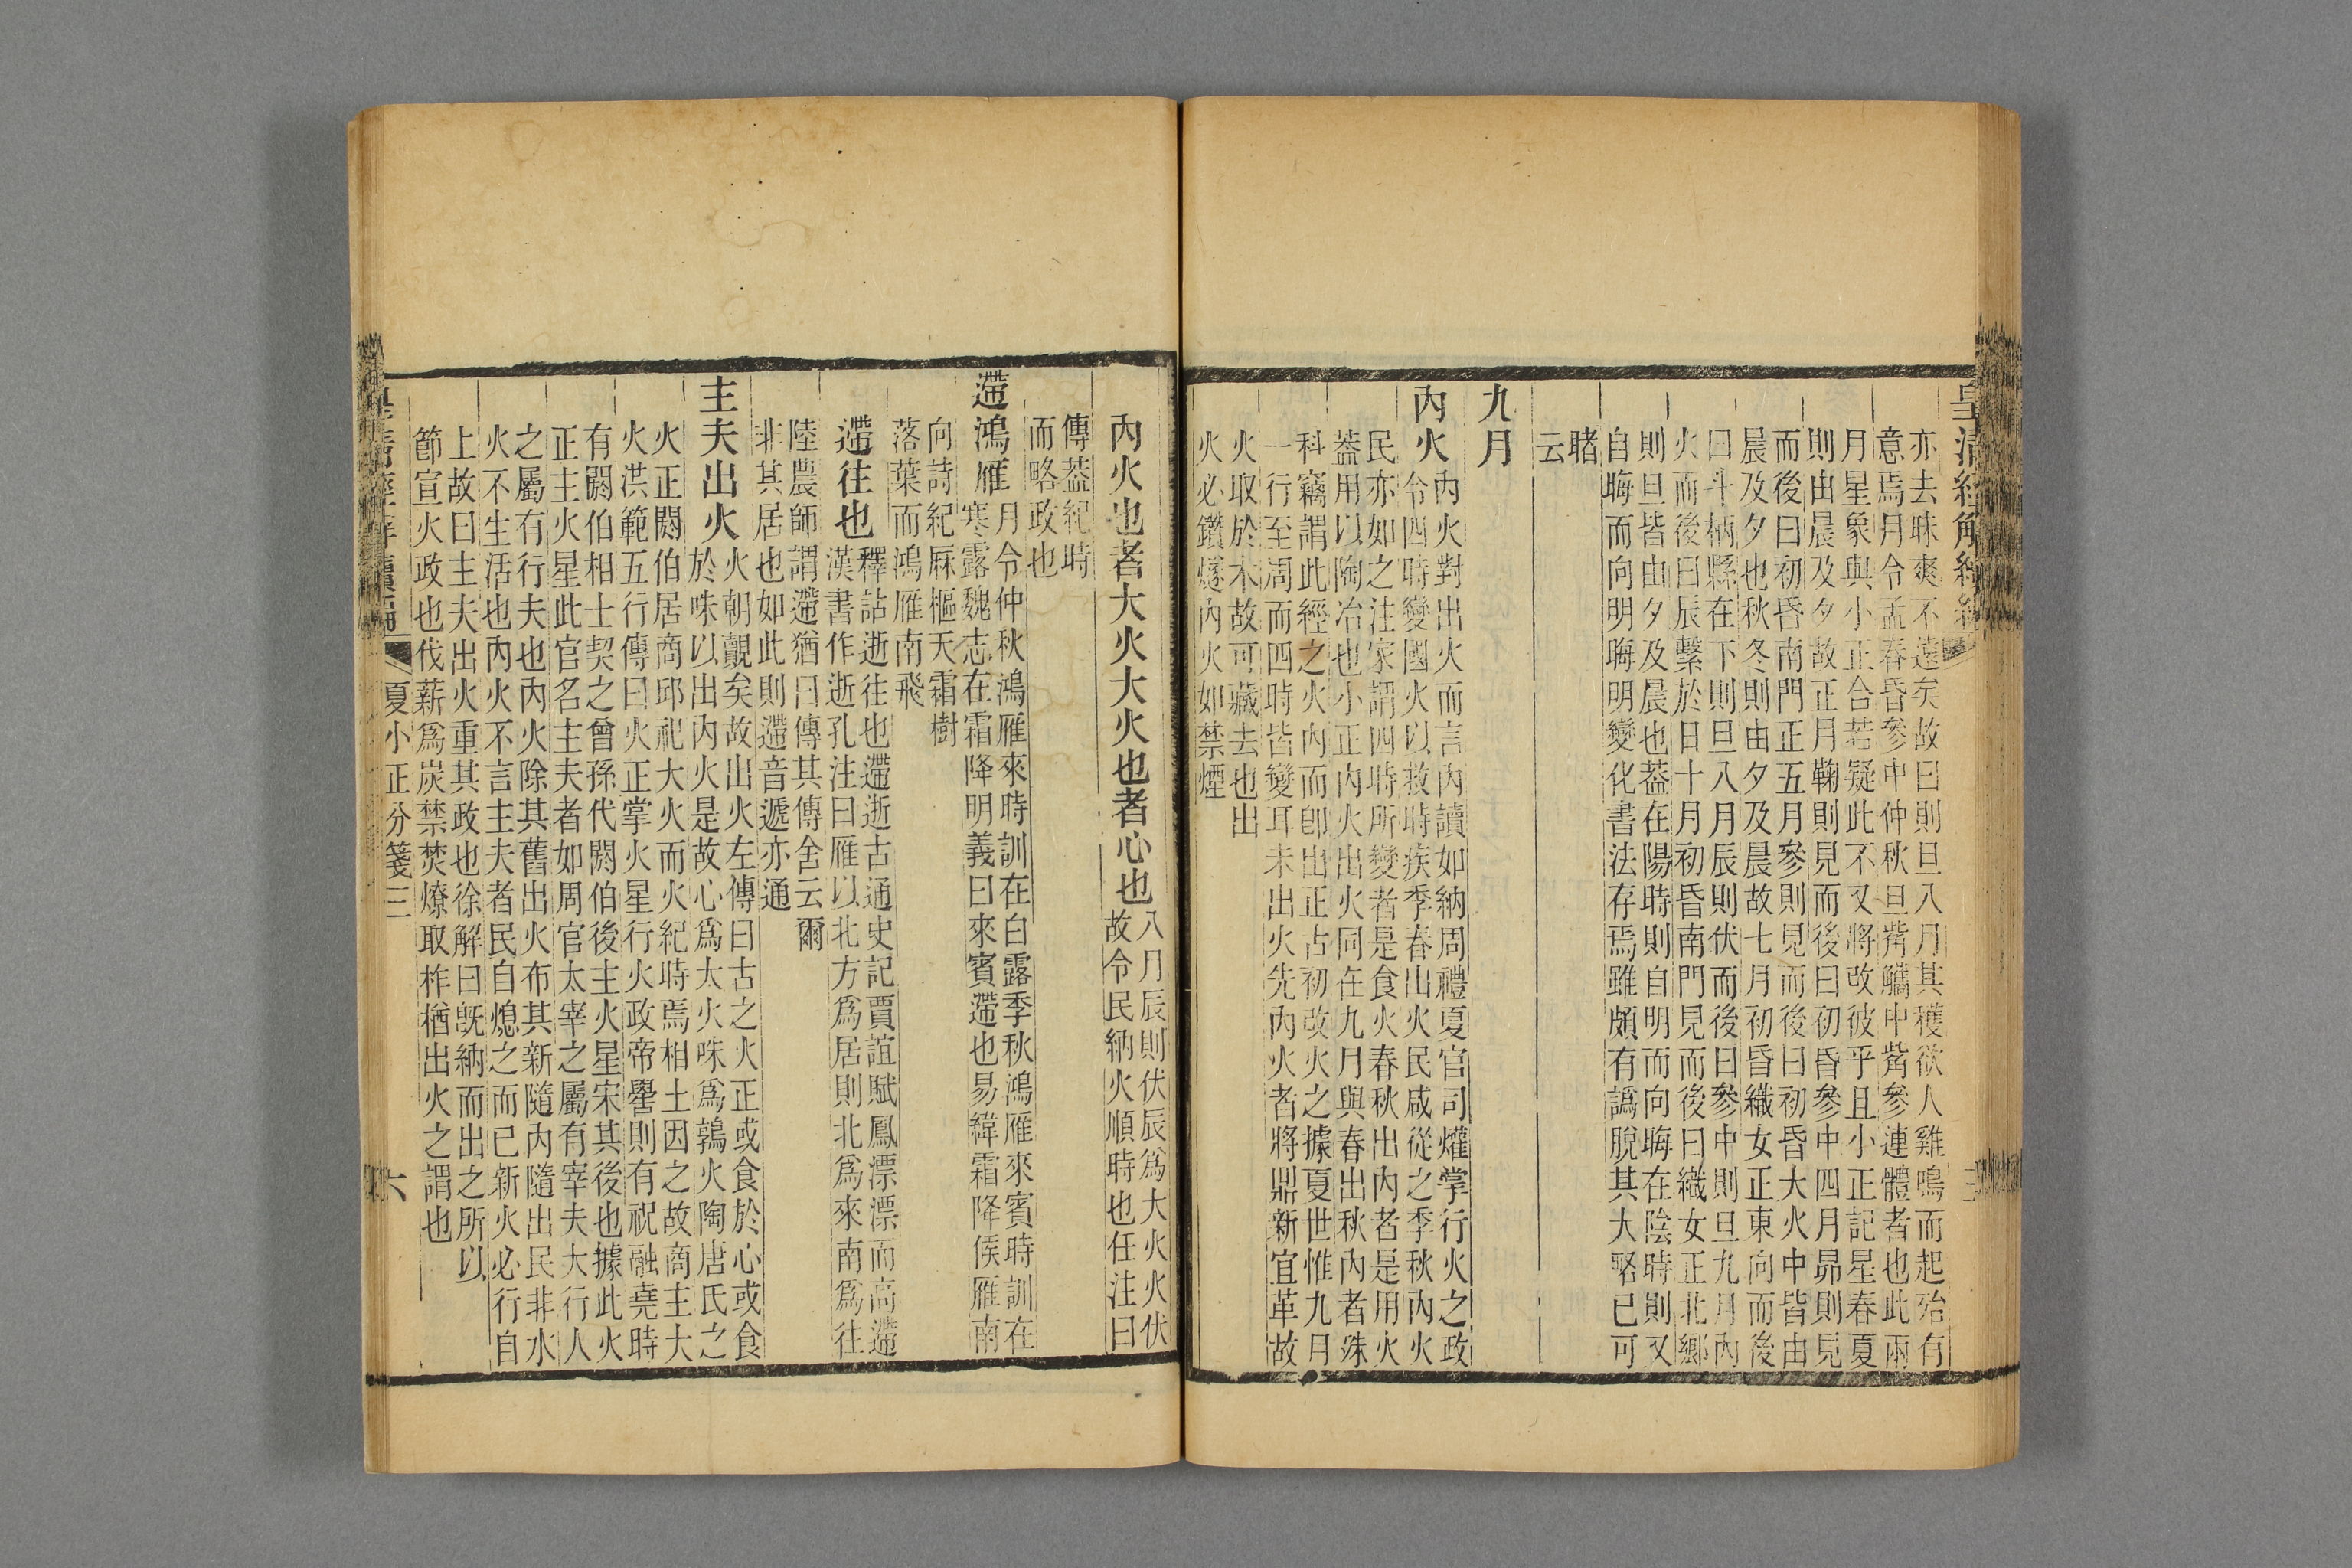 皇清經解續編
亦去昧爽不遠矣故曰則旦八月其穫欲人雞鳴而起殆有
意焉月令孟春昏參中仲秋旦觜觿中觜參連體者也此兩
月星象與小正合若疑此不又將改彼乎且小正記星春夏
則由晨及夕故正月鞠則見而後曰初昏參中四月昴則見
而後曰初昏南門正五月參則見而後曰初昏大火中皆由
晨及夕也秋冬則由夕及晨故七月初昏織女正東向而後
曰斗柄縣在下則旦八月辰則伏而後曰參中則旦九月內
火而後曰辰繫於日十月初昏南門見而後曰織女正北鄉
則旦皆由夕及晨也葢在陽時則自明而向晦在陰時則又
自晦而向明晦明變化書法存焉雖頗有譌脫其大畧已可
睹
云
九月
內火
內火對出火而言內讀如納周禮夏官司爟掌行火之政
令四時變國火以救時疾季春出火民咸從之季秋內火
民亦如之注家謂四時所變者是食火春秋出內者是用火
葢用以陶冶也小正內火出火同在九月與春出秋內者殊
科竊謂此經之火內而卽出正占初改火之據夏世惟九月
一行至周而四時皆變耳未出火先內火者將鼎新宜革故
火取於木故可藏去也出
火必鑽燧內火如禁煙
內火也者大火大火也者心也
八月辰則伏辰爲大火火伏
故令民納火順時也任注曰
傳葢紀時
而略政也
遰鴻雁
月令仲秋鴻雁來時訓在白露季秋鴻雁來賓時訓在
寒露魏志在霜降明義曰來賓遰也易緯霜降候雁南
向詩紀厤樞天霜樹
落葉而鴻雁南飛
遰往也
釋詁逝往也遰逝古通史記賈誼賦鳳漂漂而高遰
漢書作逝孔注曰雁以北方爲居則北爲來南爲往
陸農師謂遰猶曰傳其傳舍云爾
非其居也如此則遰音遞亦通
主夫出火
火朝覿矣故出火左傳曰古之火正或食於心或食
於咮以出內火是故心爲大火咮爲鶉火陶唐氏之
火正閼伯居商邱祀大火而火紀時焉相土因之故商主大
火洪範五行傳曰火正掌火星行火政帝嚳則有祝融堯時
有閼伯相士契之曾孫代閼伯後主火星宋其後也據此火
正主火星此官名主夫者如周官太宰之屬有宰夫大行人
之屬有行夫也內火除其舊出火布其新隨內隨出民非水
火不生活也內火不言主夫者民自熄之而已新火必行自
上故曰主夫出火重其政也徐解曰旣納而出之所以
節宣火政也伐薪爲炭禁焚燎取柞楢出火之謂也
夏小正分箋三
六